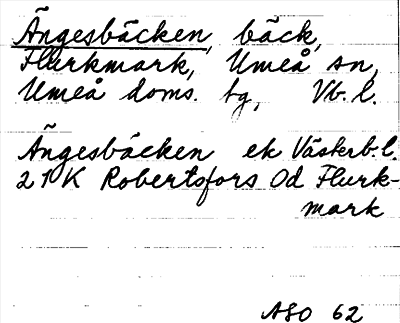 Ängesbäcken, bäck,
Flurkmark, Umeå sn,
Umeå doms. tg, Vb. l.
Ängesbäcken ek Västerb.l.
21 K Robertsfors Od Flurk-
mark
ASO 62